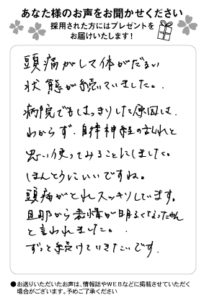 あなた様のお声をお聞かせください
採用された方にはプレゼントを
お届けいたします!
頭痛がして体がだるい
状態が続いていました。
病院でもはっきりした原因は
わからず、自律神経の乱れと
思い使ってみることにしました。
ほんとうにいいですね。
頭痛がとれスッキリしています。
旦那から表情が明るくなったねと
と言われました。
ずっと続けていきたいです。
●お送りいただいたお声は、情報誌やWEBなどに掲載させていただく
場合がございます。予めご了承ください